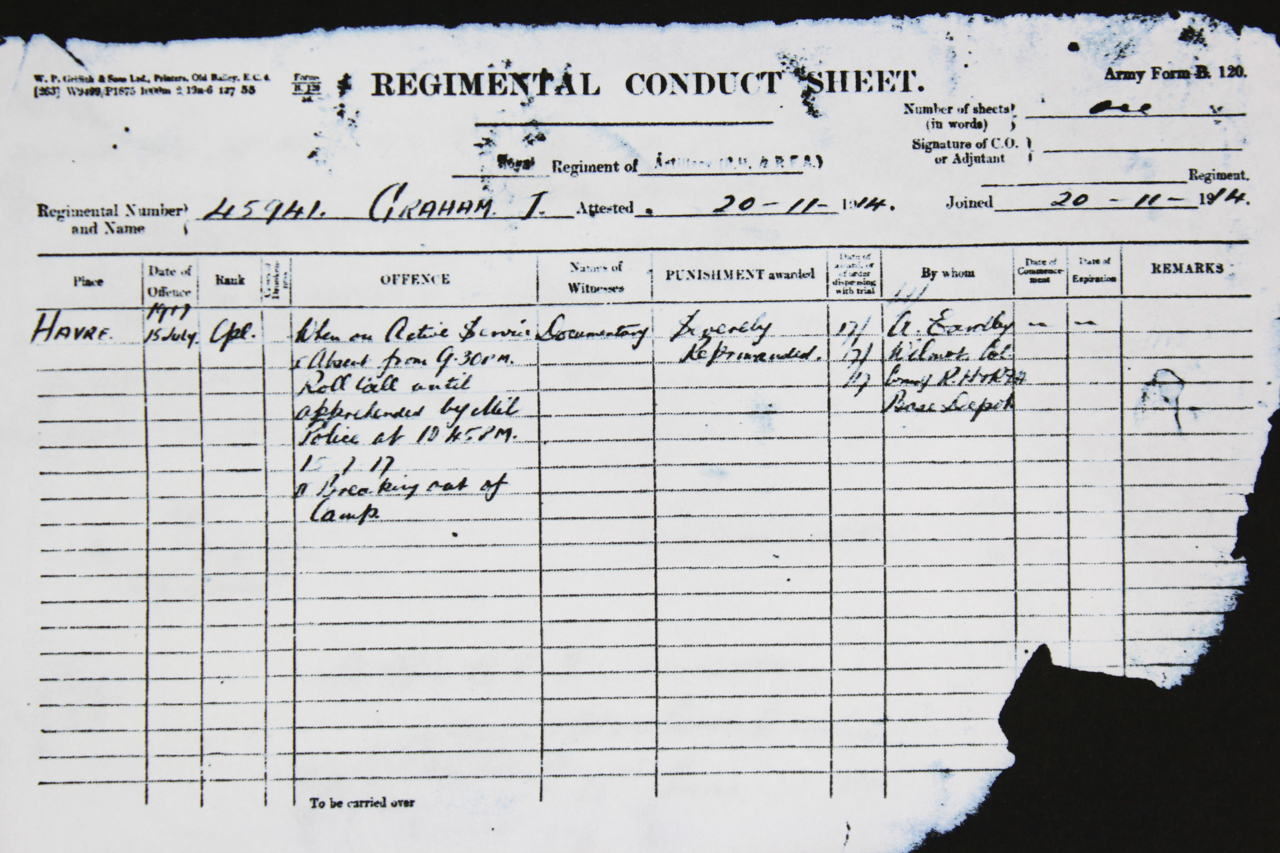 W. P. Griffith & Sons Ltd., Printers, Old Bailey, E.C.4.
Form
REGIMENTAL CONDUCT SHEET.
Army Form B. 120.
Number of sheets (in words) one
Signature of C.O. or Adjutant
Royal Regiment of Artillery (R.H. & R.F.A.)
Regiment.
Regimental Number and Name 45941. GRAHAM. J. Attested 20-11-1914. Joined 20-11-1914.
Place
Date of Offence
Rank
OFFENCE
Names of Witnesses
PUNISHMENT awarded
Date of award or of order dispensing with trial
By whom
Date of Commencement
Date of Expiration
REMARKS
1917
HAVRE. 15 July. Cpl. When on Active Service Documentary Severely 17/ A. Eardley
Absent from 9.30 P.M. Reprimanded. 7/ Wilmot. Col.
Roll Call until 17
apprehended by Mil Base Depot
Police at 10 45 P.M.
7 17
Breaking out of
Camp.
To be carried over